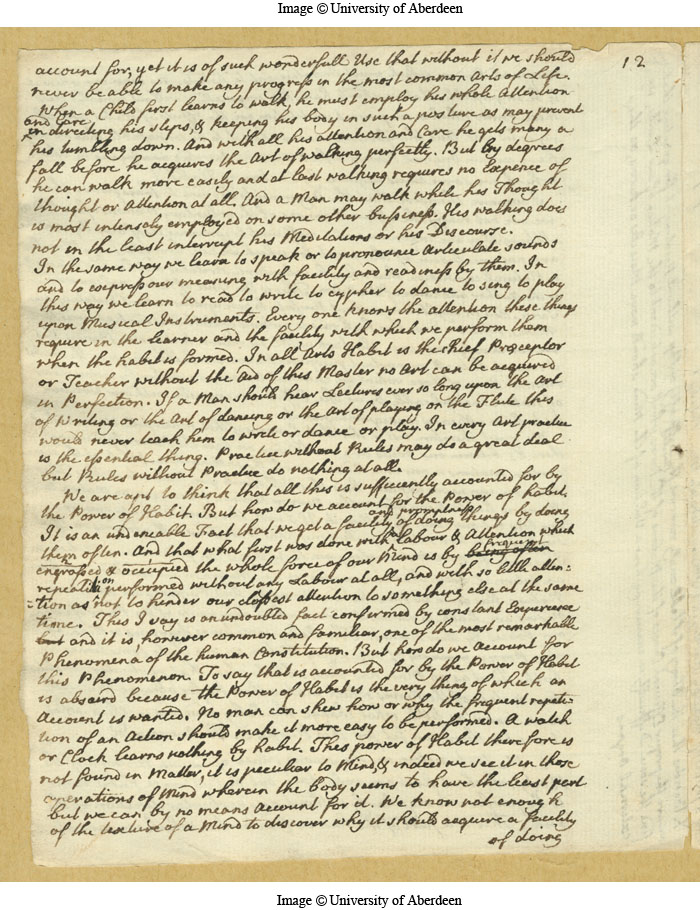 Image © University of Aberdeen
12
account for, yet it is of such wonderfull Use that without it we should
never be able to make any progress in the most common Arts of Life.
When a Child first learns to walk, he must employ his whole Attention
and Care
in directing his steps, & keeping his body in such a posture as may prevent
his tumbling down. And with all his attention and Care he gets many a
fall before he acquires the Art of walking perfectly. But by degrees
he can walk more easily and at last walking requires no Expence of
thought or Attention at all. And a Man may walk while his Thought
is most intensely employed on some other bussiness. His walking does
not in the least interrupt his Meditations or his Discourse.
In the same way we learn to speak or to pronounce Articulate sounds
and to express our meaning with facility and readiness by them. In
this way we learn to read to write to cypher to dance to sing to play
upon Musical Instruments. Every one knows the attention these things
require in the learner and the facility with which we perform them
when the habit is formed. In all Arts Habit is the chief Præceptor
or Teacher without the Aid of this Master no Art can be acquired
in Perfection. If a Man should hear Lectures ever so long upon the Art
of Writing or the Art of dancing or the Art of playing on the Flute this
would never teach him to write or dance or play. In every Art practice
is the essential thing. Practice without Rules may do a great deal
but Rules without Practice do nothing at all.
We are apt to think that all this is sufficiently accounted for by
the Power of Habit. But how do we account for the Power of habit.
and promptness
It is an undeniable Fact that we get a facility of doing things by doing
them often. And that what first was done with Labour & Attention which
frequent
engrossed & occupied the whole force of our Mind is by being often
repetition performed without any Labour at all, and with so little atten-
-tion as not to hinder our closest attention to something else at the same
time. This I say is an undoubted fact confirmed by constant Experience
but and it is, however common and familiar, one of the most remarkable
Phenomena of the human Constitution. But how do we account for
this Phenomenon. To say that is accounted for by the Power of Habit
is absurd because the Power of Habit is the very thing of which an
Account is wanted. No man can shew how or why the frequent repeti-
tion of an Action should make it more easy to be performed. A watch
or Clock learns nothing by habit. This power of Habit therefore is
not found in Matter, it is peculiar to Mind, & indeed we see it in those
operations of Mind wherein the body seems to have the least part
but we can by no means account for it. We know not enough
of the texture of a Mind to discover why it should acquire a facility
of doing
Image © University of Aberdeen